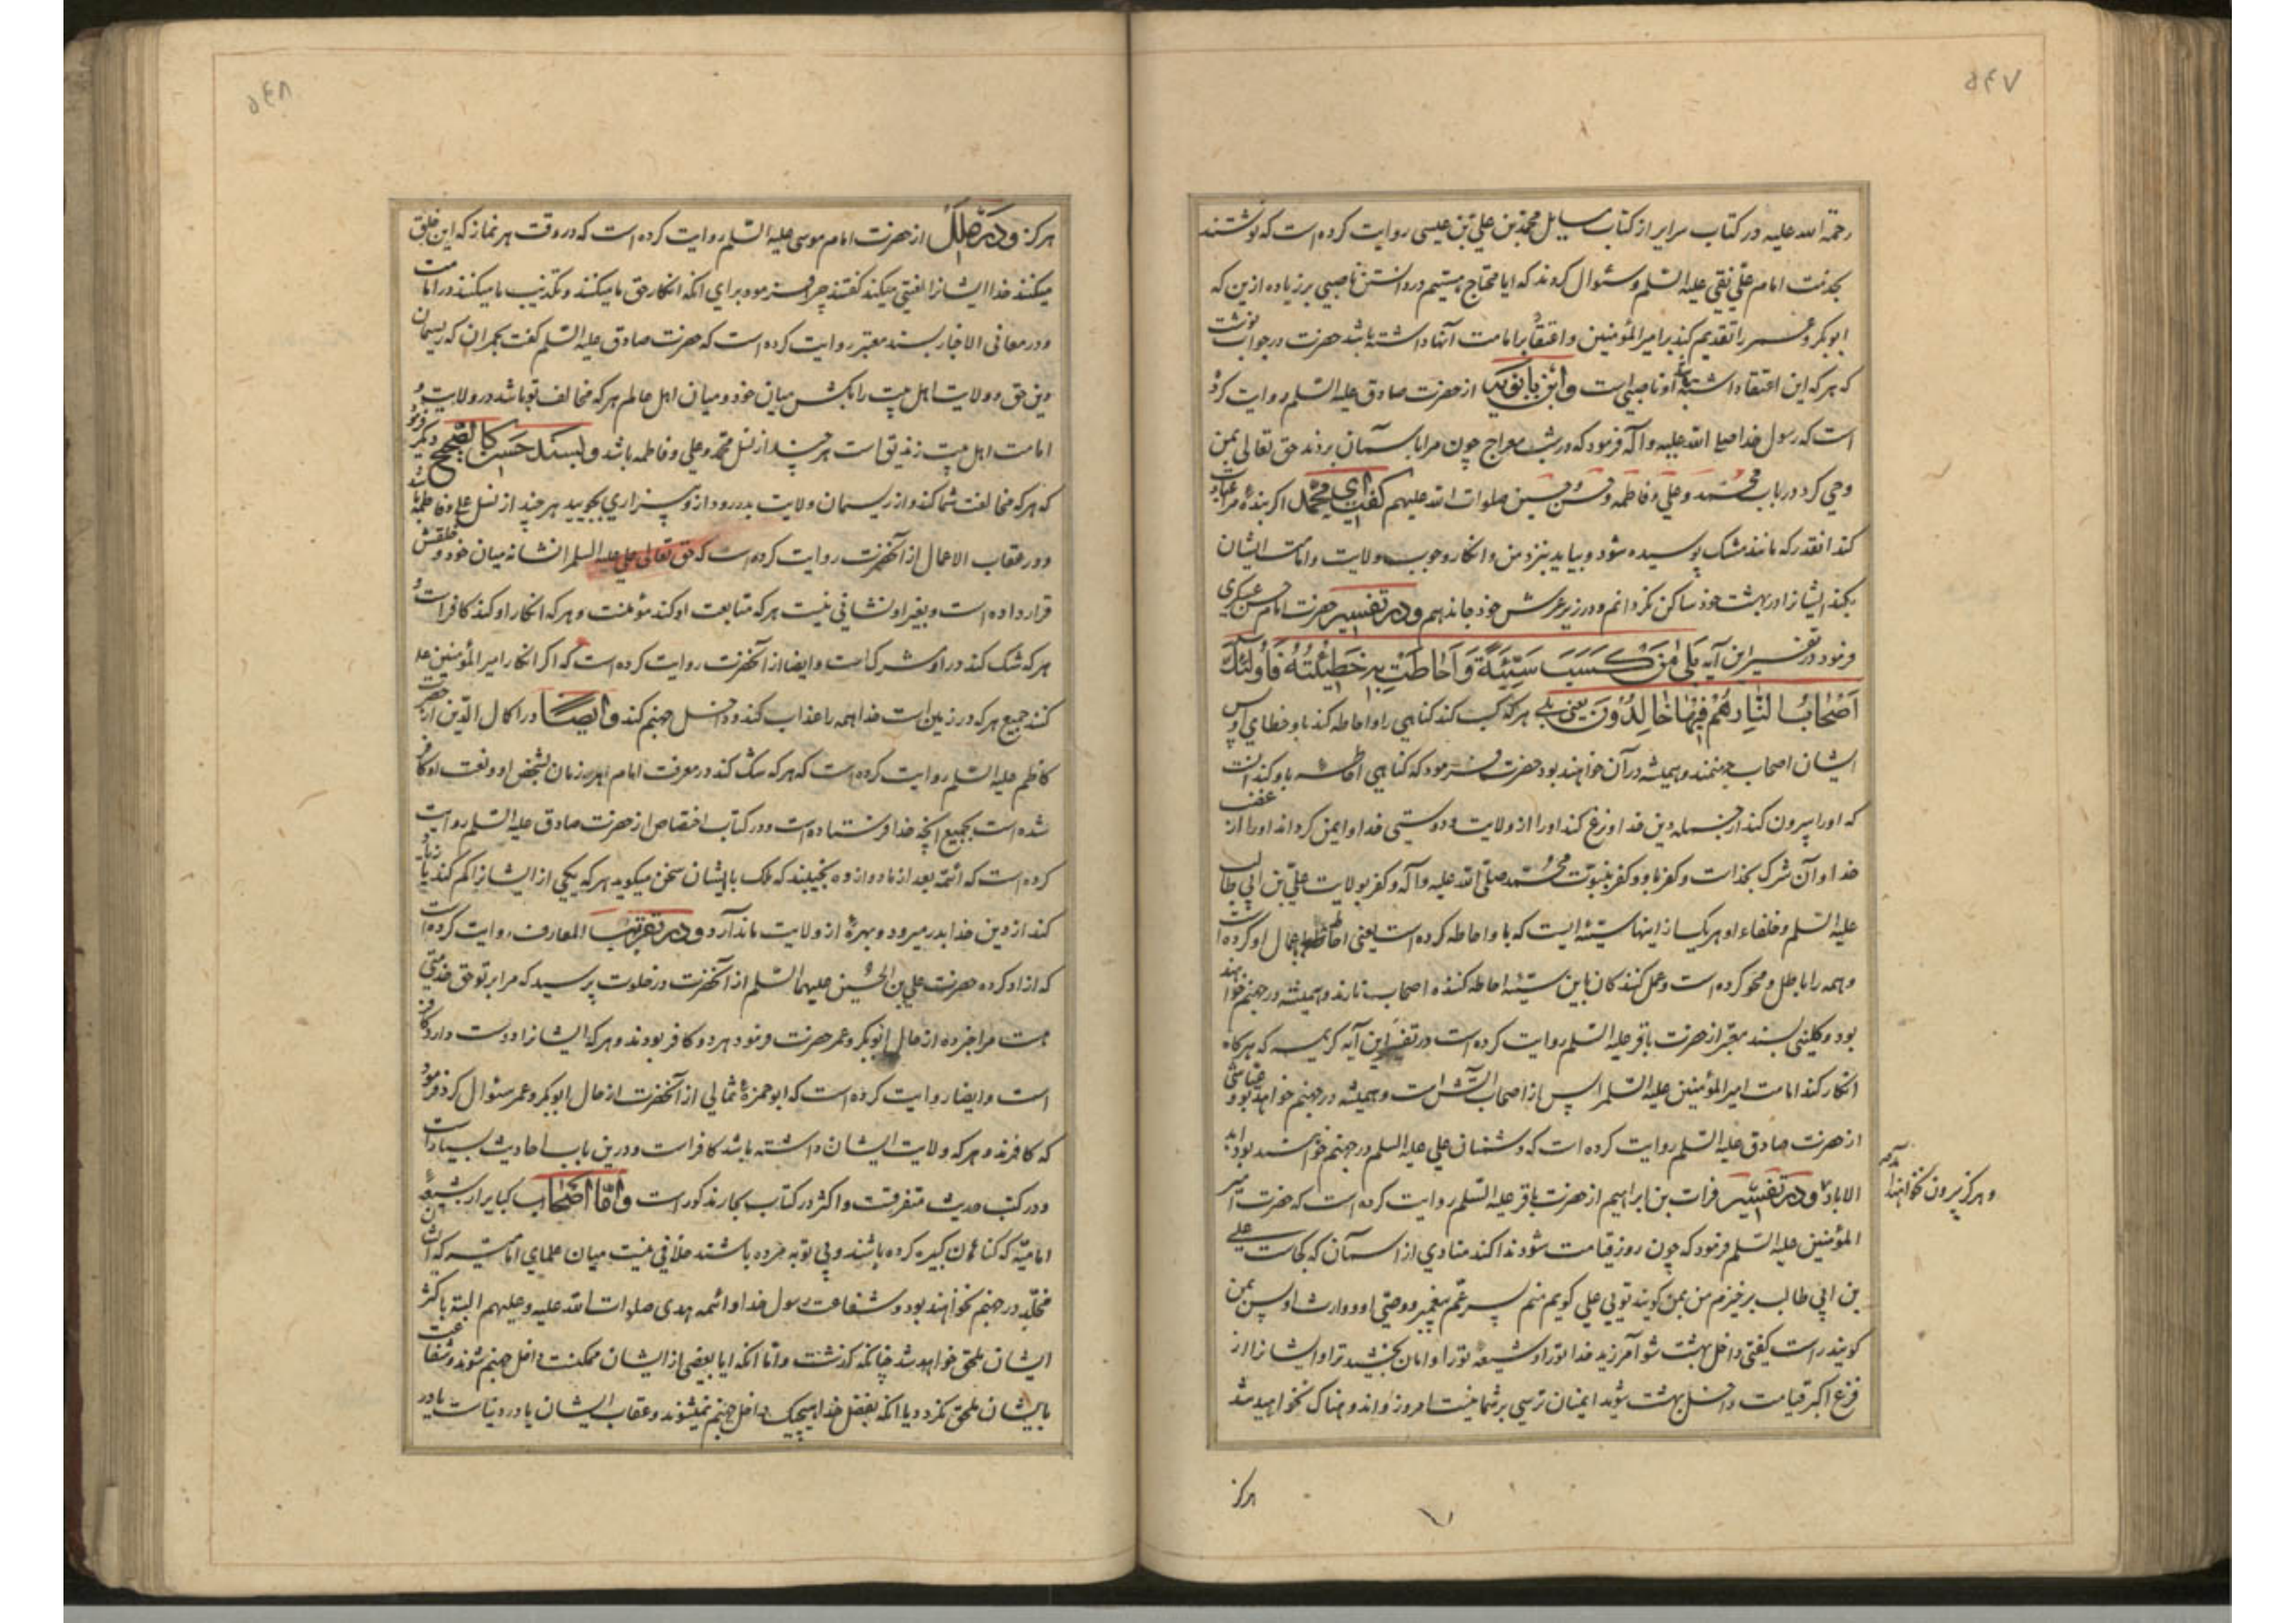 ۵۴۷
رحمة الله علیه در کتاب سرایر از کتاب مسایل محمد بن علی بن عیسی روایت کرده است که نوشتند
بخدمت امام علی نقی علیه السلم و سئوال کردند که ایا محتاج هستیم در دانستن ناصبی بر زیاده ازین که
ابوبکر و عمر را تقدیم کند بر امیر المؤمنین و اعتقاد بامامت آنها داشته باشد حضرت در جواب نوشت
که هر که این اعتقاد داشته باشد او ناصبی است و ابن بابویه از حضرت صادق علیه السلم روایت کرده
است که رسول خدا صلی الله علیه و آله فرمود که در شب معراج چون مرا باسمان بردند حق تعالی بمن
وحی کرد در باب محمد و علی و فاطمه و حسن و حسین صلوات الله علیهم گفت ای محمد اگر بندهٔ مرا عبادت
کند انقدر که مانند مشک پوسیده شود و بیاید بنزد من و انکار وجوب ولایت و امامت ایشان
بکند ایشانرا در بهشت خود ساکن نگردانم و در زیر عرش خود جا ندهم و در تفسیر حضرت امام حسن عسکری
فرمود در تفسیر این آیه بَلَى مَنْ كَسَبَ سَيِّئَةً وَأَحَاطَتْ بِهِ خَطِيئَتُهُ فَأُولَئِكَ
أَصْحَابُ النَّارِ هُمْ فِيهَا خَالِدُونَ یعنی بلی هر که کسب کند گناهی را و احاطه کند باو خطای او پس
ایشان اصحاب جهنمند و همیشه در آن خواهند بود حضرت فرمود که گناهی احاطه باو کند انست
که او را بیرون کند از جمله دین خدا و نزع کند اورا از ولایت و دوستی خدا و ایمن گرداند اورا از غضب
خدا و آن شرک بخداست و کفر باو و کفر بنبوت محمد صلی الله علیه و آله و کفر بولایت علی بن ابی طالب
علیه السلم و خلفاء او هر یک از اینها سیئه ایست که باو احاطه کرده است یعنی احاطه باعمال او کرده است
و همه را باطل و محو کرده است و عمل کنندکان باین سیئه احاطه کننده اصحاب نارند و همیشه در جهنم خواهند
بود و کلینی بسند معتبر از حضرت باقر علیه السلم روایت کرده است در تفسیر این آیه کریمه که هرکاه
انکار کند امامت امیر المؤمنین علیه السلم را پس از اصحاب آتش است و همیشه در جهنم خواهد بود و عیاشی
از حضرت صادق علیه السلم روایت کرده است که دشمنان علی علیه السلم در جهنم خواهند بود ابد
الاباد و در تفسیر فرات بن ابراهیم از حضرت باقر علیه السلم روایت کرده است که حضرت امیر
و هرکز بیرون نخواهند آمد
المؤمنین علیه السلم فرمود که چون روز قیامت شود ندا کند منادی از آسمان که کجاست علی
بن ابی طالب برخیزم من بمن گویند تویی علی گویم منم پسر عم پیغمبر و وصی او و وارث او پس بمن
گویند راست گفتی داخل بهشت شو آمرزید خدا تورا و شیعه تورا و امان بخشید ترا و ایشانرا از
فزع اکبر قیامت داخل بهشت شوید ایمنان ترسی بر شما نیست امروز و اندوهناک نخواهید شد
هرکز
۵۴۸
هرکز و در علل از حضرت امام موسی علیه السلم روایت کرده است که در وقت هر نماز که این خلق
میکنند خدا ایشانرا لعنتی میکند گفتند چرا فرمود برای انکه انکار حق ما میکنند و تکذیب ما میکنند در امامت
و در معانی الاخبار بسند معتبر روایت کرده است که حضرت صادق علیه السلم گفت بحمران که ریسمان
دین حق و ولایت اهل بیت را بکش میان خود و میان اهل عالم هر که مخالف تو باشد در ولایت و
امامت اهل بیت زندیق است هر چند از نسل محمد و علی و فاطمه باشد و بسند حسن کالصحیح دیگر فرمود
که هر که مخالفت شما کند و از ریسمان ولایت بدر رود از او بیزاری بجویید هر چند از نسل علی و فاطمه باشد
و در عقاب الاعمال از آنحضرت روایت کرده است که حق تعالی علی علیه السلم را نشانه میان خود و خلقش
قرار داده است و بغیر او نشانی نیست هر که متابعت او کند مؤمنست و هر که انکار او کند کافر است و
هر که شک کند در او مشرکست و ایضا از آنحضرت روایت کرده است که اگر انکار امیر المؤمنین علیه
کنند جمیع هر که در زمین است خدا همه را عذاب کند و داخل جهنم کند و ایضا در اکمال الدین از حضرت
کاظم علیه السلم روایت کرده است که هر که شک کند در معرفت امام هر زمان بشخص او و نعت او کافر
شده است بجمیع آنچه خدا فرستاده است و در کتاب اختصاص از حضرت صادق علیه السلم روایت
کرده است که ائمه بعد از ما دوازده نجیبند که ملک با ایشان سخن میکوید هر که یکی از ایشانرا کم کند یا زیاد
کند از دین خدا بدر میرود و بهرهٔ از ولایت ما ندارد و در تقریب المعارف روایت کرده است
که ازاد کرده حضرت علی بن الحسین علیهما السلم از آنحضرت در خلوت پرسید که مرا بر تو حق خدمتی
هست مرا خبر ده از حال ابوبکر و عمر حضرت فرمود هر دو کافر بودند و هر که ایشانرا دوست دارد کافر
است و ایضا روایت کرده است که ابوحمزهٔ ثمالی از آنحضرت از حال ابوبکر و عمر سئوال کرد فرمود
که کافرند و هر که ولایت ایشان داشته باشد کافر است و درین باب احادیث بسیار است
و در کتب حدیث متفرقست و اکثر در کتاب بحار مذکور است و امّا اصحاب کبایر از شیعهٔ
امامیّه که گناهان کبیره کرده باشند و بی توبه مرده باشند خلافی نیست میان علمای امامیه که ایشان
مخلّد در جهنم نخواهند بود و شفاعت رسول خدا و ائمه هدی صلوات الله علیه و علیهم البته باکثر
ایشان ملحق خواهد شد چنانکه گذشت و اما انکه ایا بعضی از ایشان ممکنست داخل جهنم شوند و شفاعت
بایشان ملحق نکردد یا انکه بفضل خدا هیچیک داخل جهنم نمیشوند و عقاب ایشان یا در دنیاست یا در